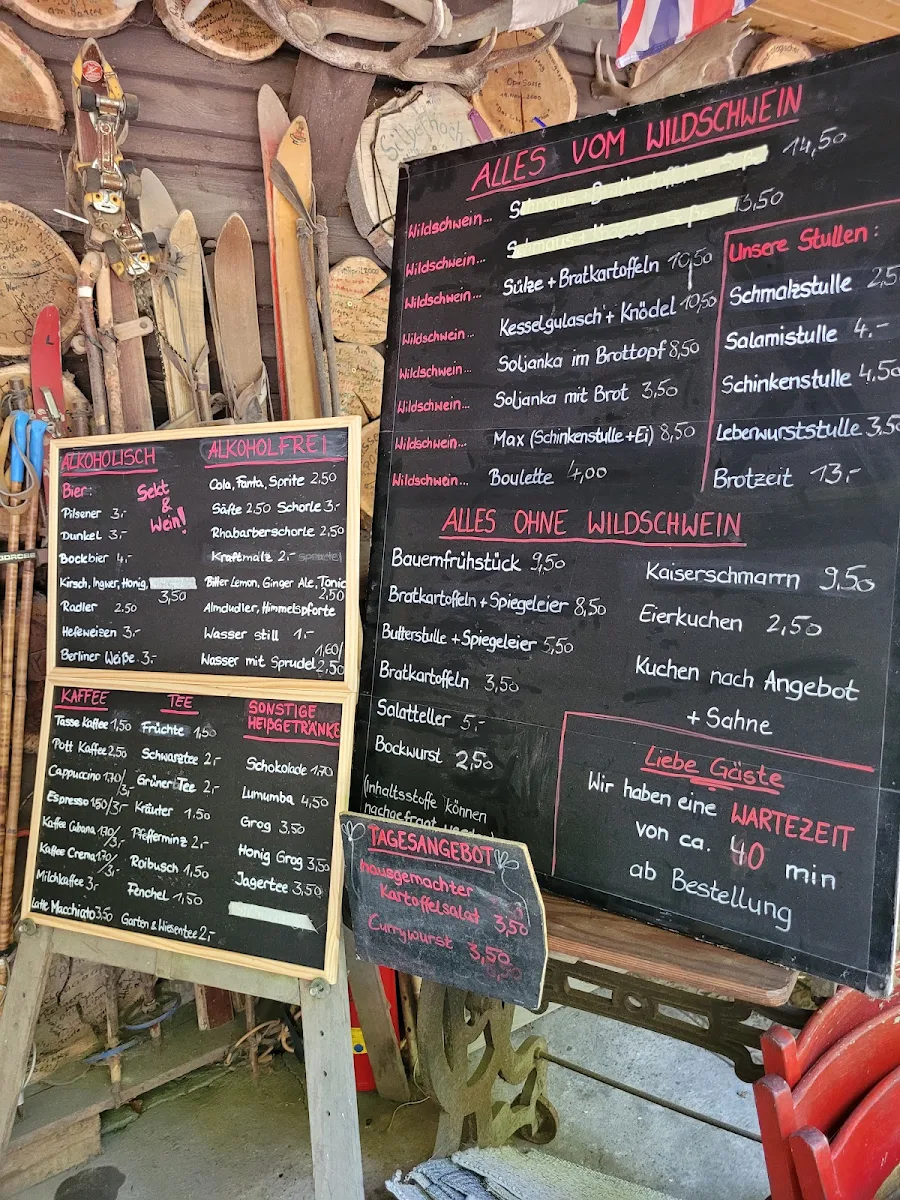 ALLES VOM WILDSCHWEIN
Wildschwein... 14,50
Wildschwein... 13,50
Wildschwein... Sülze + Bratkartoffeln 10,50
Wildschwein... Kesselgulasch + Knödel 10,50
Wildschwein... Soljanka im Brottopf 8,50
Wildschwein... Soljanka mit Brot 3,50
Wildschwein... Max (Schinkenstulle + Ei) 8,50
Wildschwein... Boulette 4,00
Unsere Stullen:
Schmalzstulle 2,5
Salamistulle 4.-
Schinkenstulle 4,50
Leberwurststulle 3,50
Brotzeit 13,-
ALLES OHNE WILDSCHWEIN
Bauernfrühstück 9,50
Bratkartoffeln + Spiegeleier 8,50
Butterstulle + Spiegeleier 5,50
Bratkartoffeln 3,50
Salatteller 5,-
Bockwurst 2,50
(Inhaltsstoffe können
nachgefragt
Kaiserschmarrn 9,50
Eierkuchen 2,50
Kuchen nach Angebot
+ Sahne
Liebe Gäste
Wir haben eine WARTEZEIT
von ca. 40 min
ab Bestellung
ALKOHOLISCH
Bier:
Sekt
&
Wein!
Pilsener 3,-
Dunkel 3,-
Bockbier 4,-
Kirsch, Ingwer, Honig,
3,50
Radler 2.50
Hefeweizen 3,-
Berliner Weiße 3,-
ALKOHOLFREI
Cola, Fanta, Sprite 2,50
Säfte 2.50 Schorle 3,-
Rhabarberschorle 2,50
Kraftmalz 2,-
Bitter Lemon, Ginger Ale, Tonic
2,50
Almdudler, Himmelspforte
Wasser still 1,-
Wasser mit Sprudel 1,60/
2,50
KAFFEE
Tasse Kaffee 1,50
Pott Kaffee 2,50
Cappuccino 1,70/
3,-
Espresso 1,50/3,-
Kaffee Cubana 1,70
/3,-
Kaffee Crema 1,70
/3,-
Milchkaffee 3,-
Latte Macchiato 3,50
TEE
Früchte 1,50
Schwarztee 2,-
Grüner Tee 2,-
Kräuter 1.50
Pfefferminz 2,-
Roibusch 1,50
Fenchel 1,50
Garten & Wiesentee 2,-
SONSTIGE
HEIßGETRÄNKE
Schokolade 1,70
Lumumba 4,50
Grog 3,50
Honig Grog 3,50
Jagertee 3,50
TAGESANGEBOT
hausgemachter
Kartoffelsalat 3,50
Currywurst 3,50